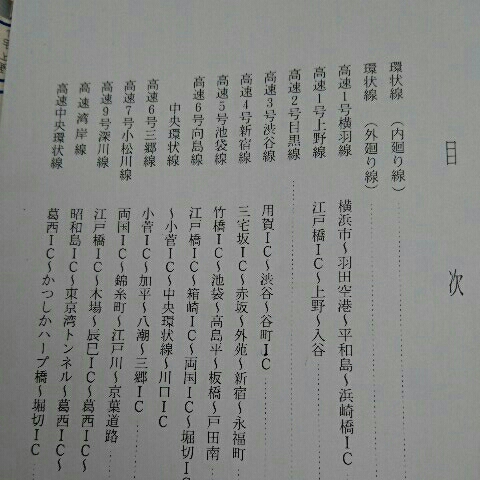 目次
環状線（内廻り線）
環状線（外廻り線）
高速1号横羽線 横浜市〜羽田空港〜平和島〜浜崎橋IC
高速1号上野線 江戸橋IC〜上野〜入谷
高速2号目黒線
高速3号渋谷線 用賀IC〜渋谷〜谷町IC
高速4号新宿線 三宅坂IC〜赤坂〜外苑〜新宿〜永福町
高速5号池袋線 竹橋IC〜池袋〜高島平〜板橋〜戸田南
高速6号向島線 江戸橋IC〜箱崎IC〜両国IC〜堀切IC
中央環状線 〜小菅IC〜中央環状線〜川口IC
高速6号三郷線 小菅IC〜加平〜八潮〜三郷IC
高速7号小松川線 両国IC〜錦糸町〜江戸川〜京葉道路
高速9号深川線 江戸橋IC〜木場〜辰巳IC〜葛西IC〜
高速湾岸線 昭和島IC〜東京湾トンネル〜葛西IC〜
高速中央環状線 葛西IC〜かつしかハープ橋〜堀切IC